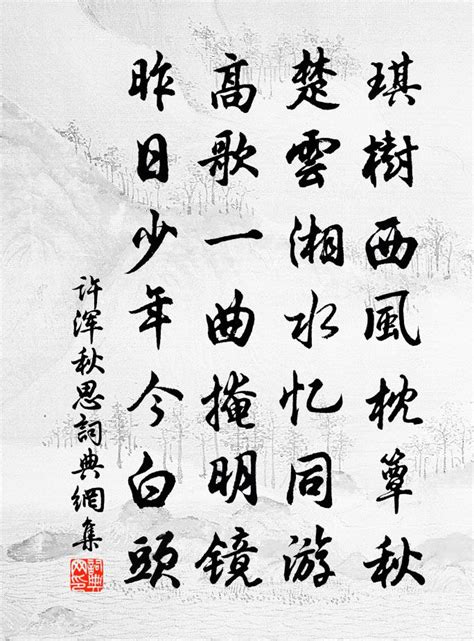 琪樹西風枕簟秋
楚雲湘水忆同游
高歌一曲掩明鏡
昨日少年今白頭
许浑秋思詞典網集